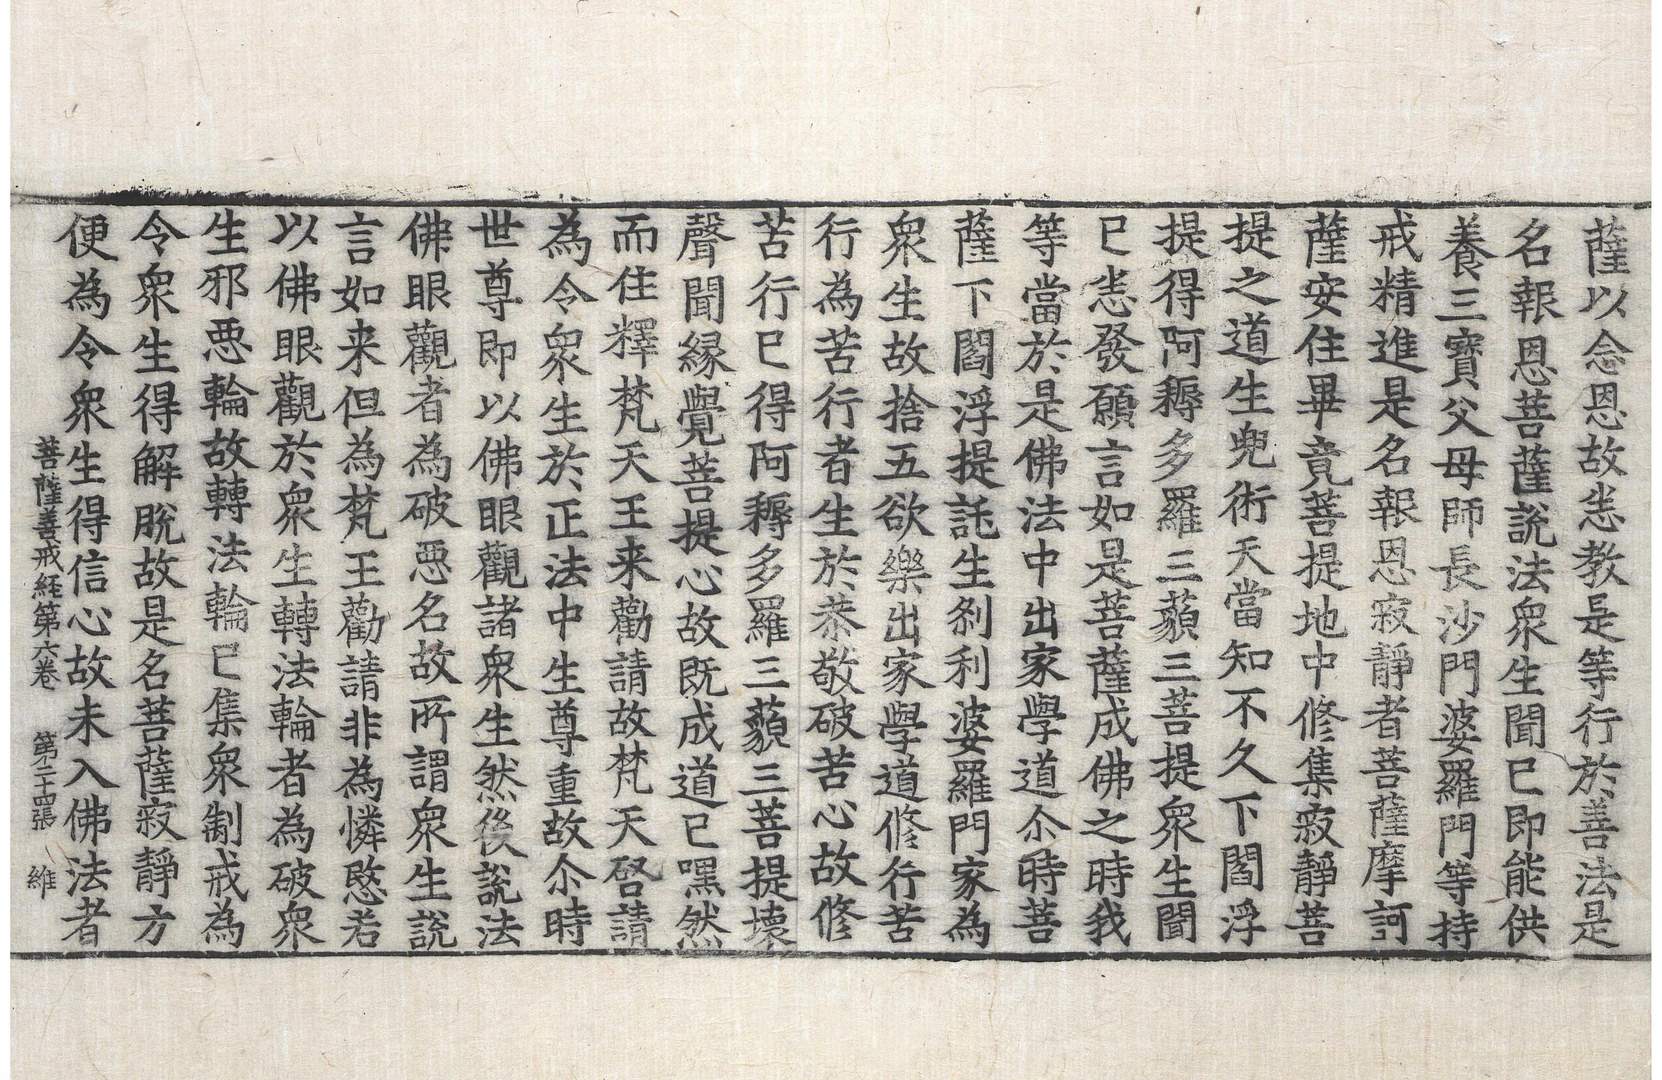 薩以念恩故恙教是等行於善法是
名報恩菩薩說法衆生聞已即能供
養三寶父母師長沙門婆羅門等持
戒精進是名報恩寂靜者菩薩摩訶
薩安住畢竟菩提地中修集寂靜菩
提之道生兜術天當知不久下閻浮
提得阿耨多羅三藐三菩提衆生聞
已恙發願言如是菩薩成佛之時我
等當於是佛法中出家學道尒時菩
薩下閻浮提託生刹利婆羅門家為
衆生故捨五欲樂出家學道修行苦
行為苦行者生於恭敬破苦心故修
苦行已得阿耨多羅三藐三菩提壞
聲聞縁覺菩提心故既成道已嘿然
而住釋梵天王来勸請故梵天啓請
為令衆生於正法中生尊重故尒時
世尊即以佛眼觀諸衆生然後說法
佛眼觀者為破惡名故所謂衆生說
言如来但為梵王勸請非為憐愍若
以佛眼觀於衆生轉法輪者為破衆
生邪惡輪故轉法輪已集衆制戒為
令衆生得解脫故是名菩薩寂靜方
便為令衆生得信心故未入佛法者
菩薩善戒経第六卷　第二十四張　維